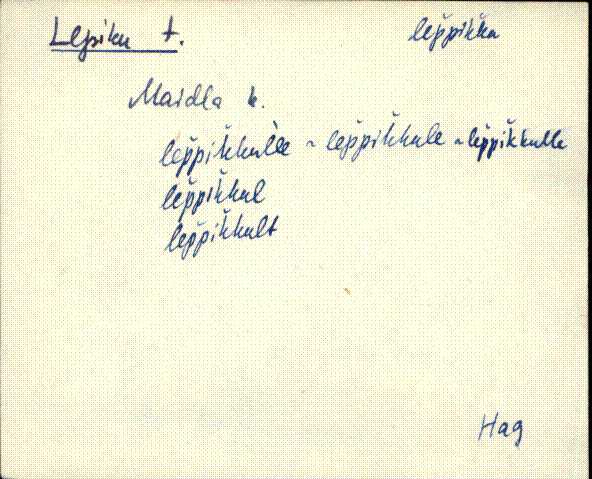 Lepiku t. lep̆pik̆ku
Maidla k.
lep̆pik̆kul̀le ~ lep̆pik̆kule ~ lep̆pik̆kulle
lep̆pik̆kul
lep̆pik̆kult
Hag